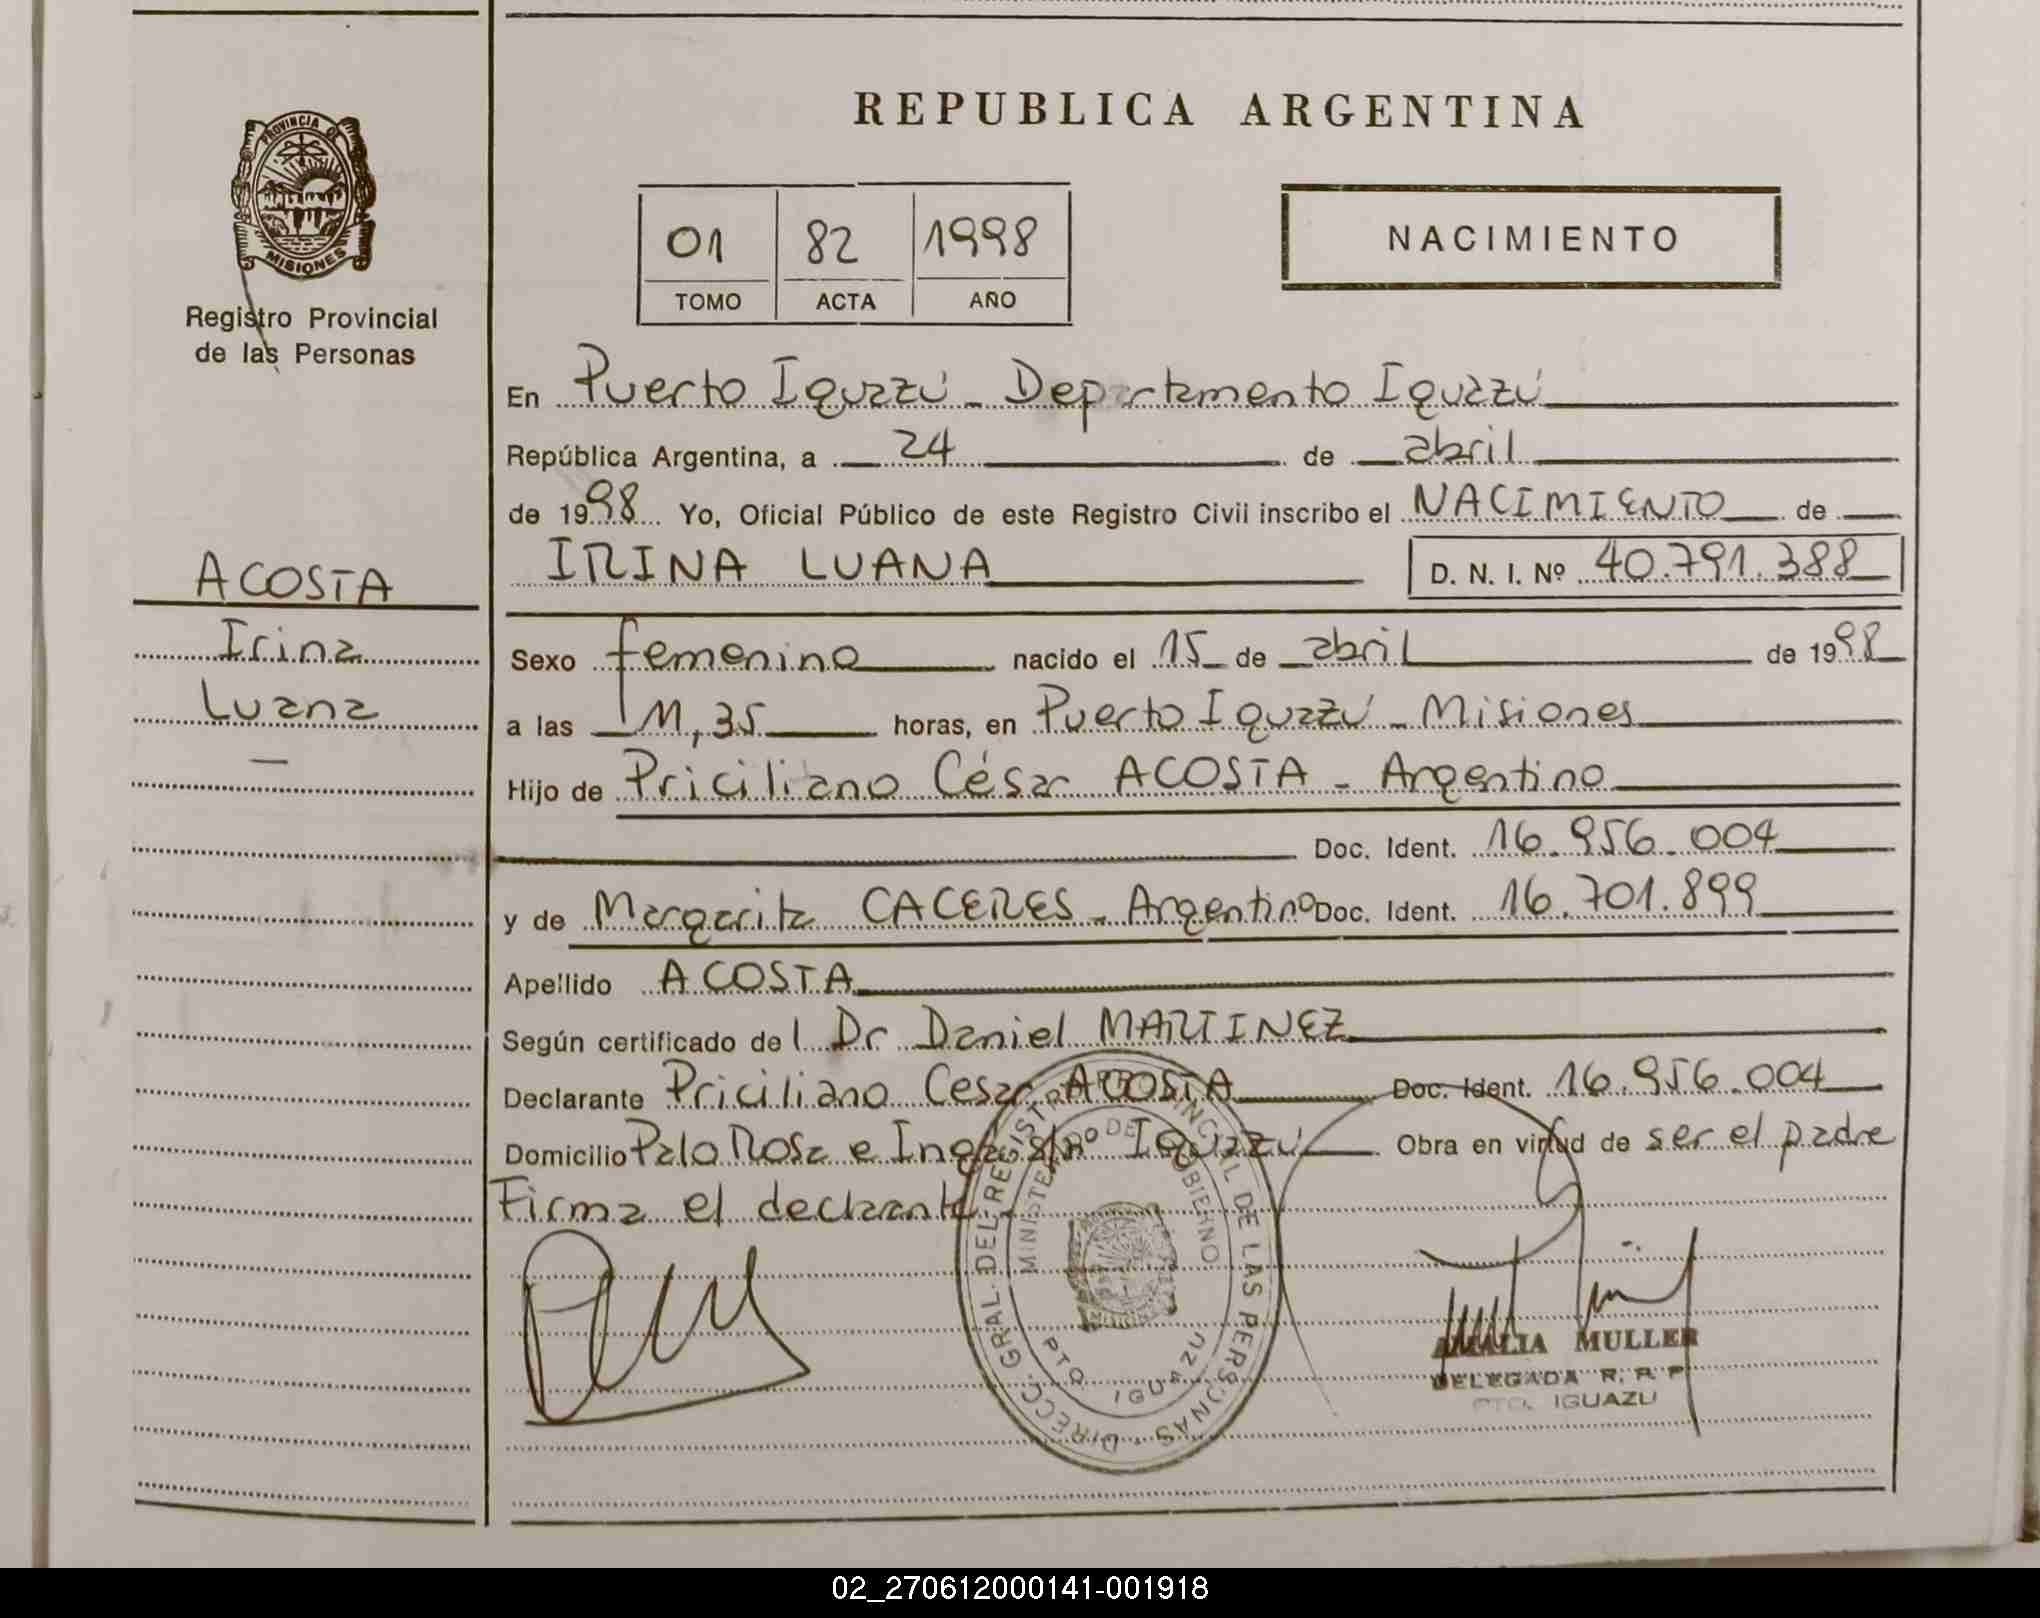 PROVINCIA DE
MISIONES
Registro Provincial
de las Personas
ACOSTA
Irina
Luana
—
REPUBLICA ARGENTINA
01 82 1998
TOMO ACTA AÑO
NACIMIENTO
En Puerto Iguazú - Departamento Iguazú
República Argentina, a 24 de abril
de 1998 Yo, Oficial Público de este Registro Civil inscribo el NACIMIENTO de
IRINA LUANA D. N. I. Nº 40.791.388
Sexo femenino nacido el 15 de abril de 1998
a las 11,35 horas, en Puerto Iguazú - Misiones
Hijo de Priciliano César ACOSTA - Argentino
Doc. Ident. 16.956.004
y de Margarita CACERES - Argentino Doc. Ident. 16.701.899
Apellido ACOSTA
Según certificado del Dr Daniel MARTINEZ
Declarante Priciliano Cesar ACOSTA Doc. Ident. 16.956.004
Domicilio Palo Rosa e Inga s/nº Iguazú Obra en virtud de ser el padre
Firma el declarante
DIRECC. GRAL. DEL REGISTRO PROVINCIAL DE LAS PERSONAS
MINISTERIO DE GOBIERNO
PTO. IGUAZU
AMALIA MULLER
DELEGADA R. R. P.
PTO. IGUAZU
02_270612000141-001918